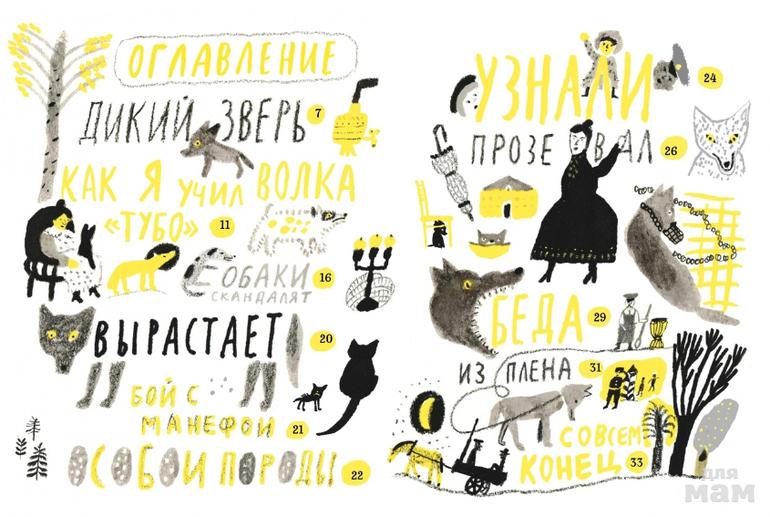 ОГЛАВЛЕНИЕ
ДИКИЙ ЗВЕРЬ 7
КАК Я УЧИЛ ВОЛКА
«ТУБО» 11
СОБАКИ 16
СКАНДАЛЯТ
ВЫРАСТАЕТ 20
БОЙ С
МАНЕФОЙ 21
ОСОБОЙ ПОРОДЫ 22
УЗНАЛИ 24
ПРОЗЕВАЛ 26
БЕДА 29
ИЗ ПЛЕНА 31
СОВСЕМ
КОНЕЦ 33
для
мам